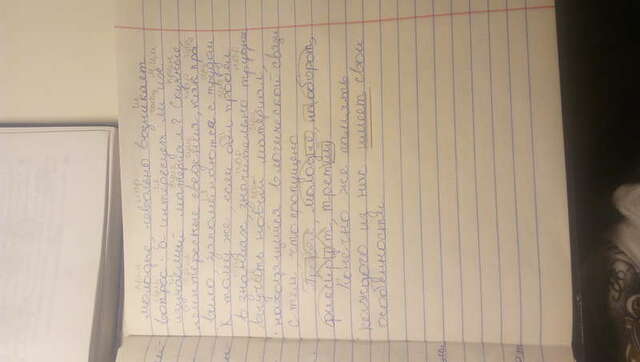 молодые, невольно возникает
вопрос - а интересует ли их
изучаемый материал? Скучные,
неинтересные сведения, как пра
вило, запоминаются с трудом
К тому же если был пробел
в знаниях, значительно труднее
выучить новый материал,
находящийся в логической связи
с тем что пропущено
молодые, наоборот,
фиксирует, третий
Конечно же память
каждого из нас имеет свои
особенности